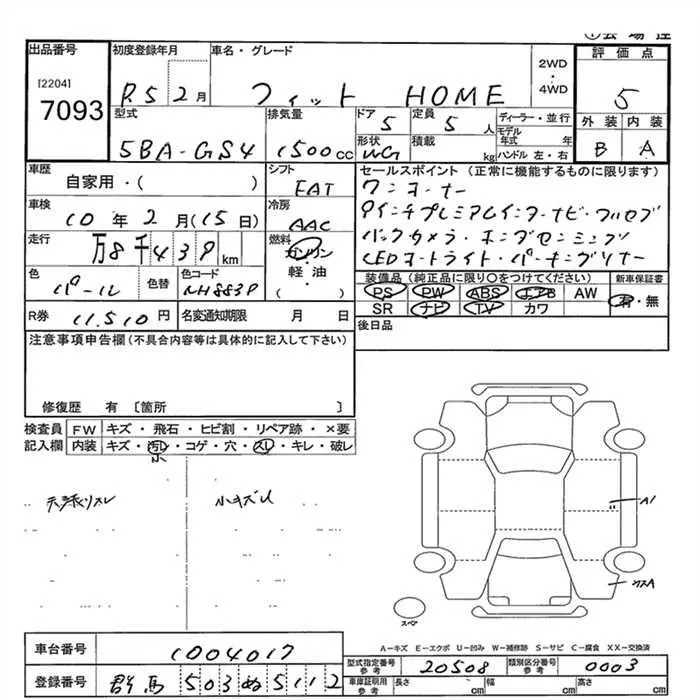 ①会場控
出品番号
[2204]
7093
初度登録年月
R5 2月
車名・グレード
フィット HOME
2WD・4WD
評価点
5
外装 内装
B A
型式
5BA-GS4
排気量
1500cc
ドア
5
定員
5人
形状
WG
積載
kg
ディーラー・並行
モデル年式 年
ハンドル 左・右
車歴
自家用・( )
シフト
FAT
車検
10年2月(15日)
冷房
AAC
走行
万8千439km
燃料
ガソリン
軽油
( ・ )
色
パール
色替
色コード
NH883P
R券 11,510円
名変通知期限 月 日
セールスポイント (正常に機能するものに限ります)
ワンオーナー
9インチプレミアムインターナビ・フルセグ
バックカメラ・ホンダセンシング
LEDオートライト・パーキングソナー
装備品 (純正品に限り○をつけてください)
新車保証書
PS PW ABS エアB AW
SR ナビ TV カワ
有・無
後日品
注意事項申告欄(不具合内容等は具体的に記入して下さい)
修復歴 有 〔箇所 〕
検査員記入欄
FW キズ・飛石・ヒビ割・リペア跡・×要
内装 キズ・汚レ・コゲ・穴・スレ・キレ・破レ
小
小キズU
A1
スペア
A-キズ E-エクボ U-凹み W-補修跡 S-サビ C-腐食 XX-交換済
車台番号 1004017
登録番号 群馬 503 ぬ 5112
型式指定番号 参考 20508
類別区分番号 参考 0003
車庫証明用 参考 長さ cm 幅 cm 高さ cm